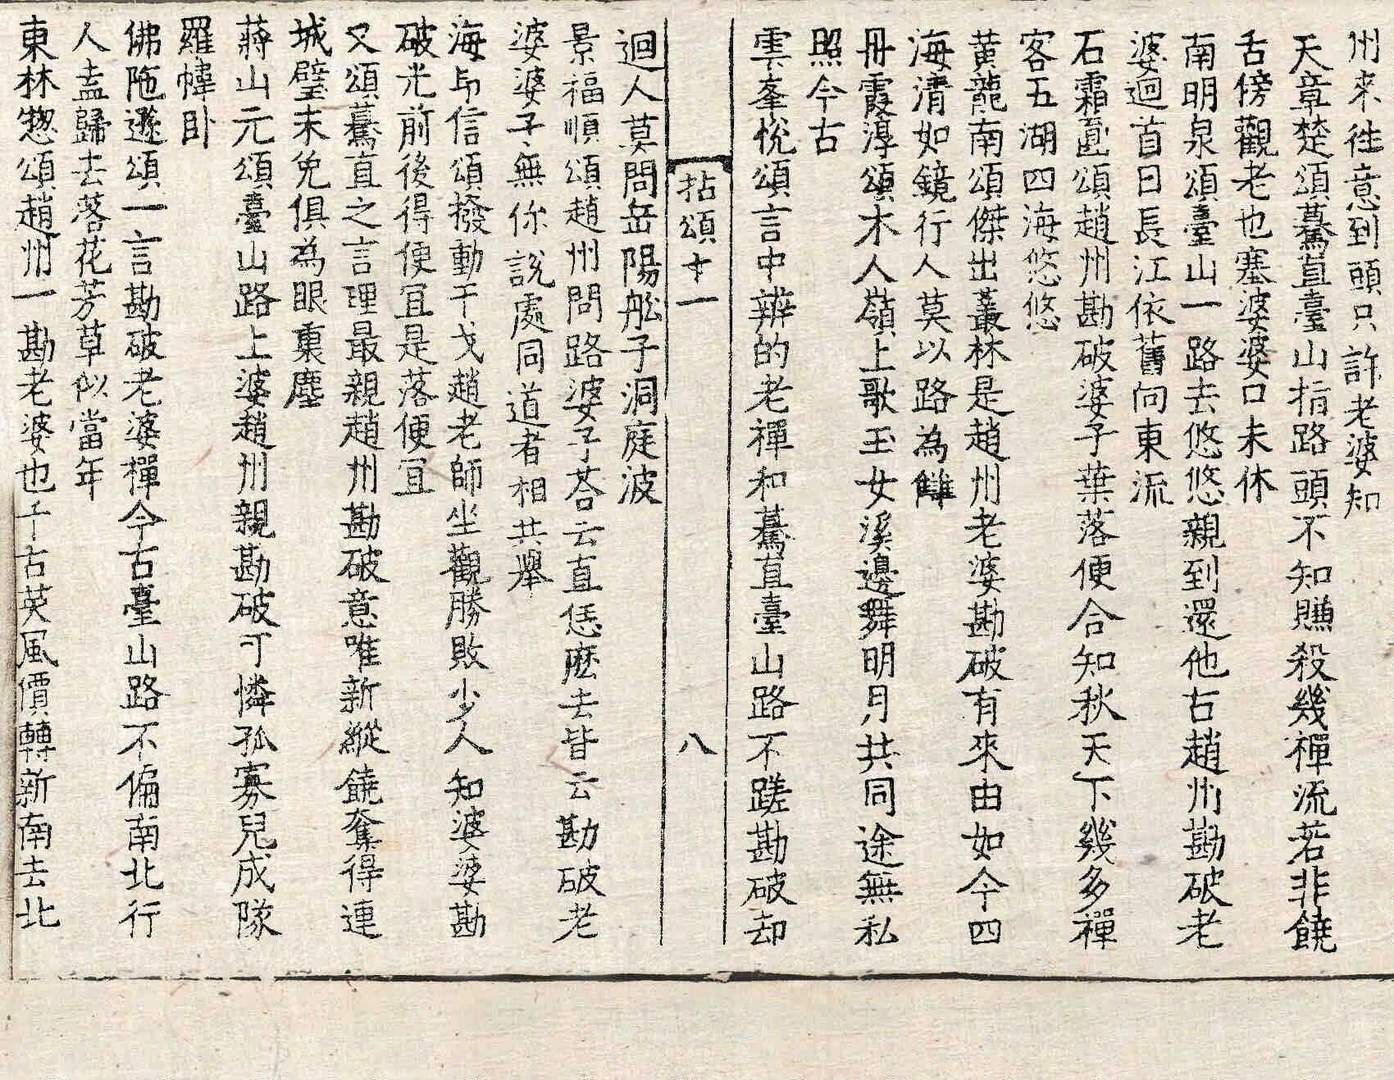 州來往意到頭只許老婆知
天章楚頌驀直臺山指路頭不知賺殺幾禪流若非饒
舌傍觀老也塞婆婆口未休
南明泉頌臺山一路去悠悠親到還他古趙州勘破老
婆迴首日長江依舊向東流
石霜圎頌趙州勘破婆子葉落便合知秋天下幾多禪
客五湖四海悠悠
黃龍南頌傑出叢林是趙州老婆勘破有來由如今四
海清如鏡行人莫以路為讎
丹霞淳頌木人嶺上歌玉女溪邊舞明月共同途無私
照今古
雲峯悅頌言中辨的老禪和驀直臺山路不蹉勘破却
拈頌十一 八
迴人莫問岳陽舩子洞庭波
景福順頌趙州問路婆子荅云直恁麽去皆云勘破老
婆婆子無你說處同道者相共舉
海印信頌撥動干戈趙老師坐觀勝敗少人知婆婆勘
破光前後得便冝是落便冝
又頌驀直之言理最親趙州勘破意唯新縱饒奪得連
城璧未免俱為眼裏塵
蔣山元頌臺山路上婆趙州親勘破可憐孤寡兒成隊
羅幃卧
佛陁遜頌一言勘破老婆禪今古臺山路不偏南北行
人盍歸去落花芳草似當年
東林惣頌趙州一勘老婆也千古英風價轉新南去北